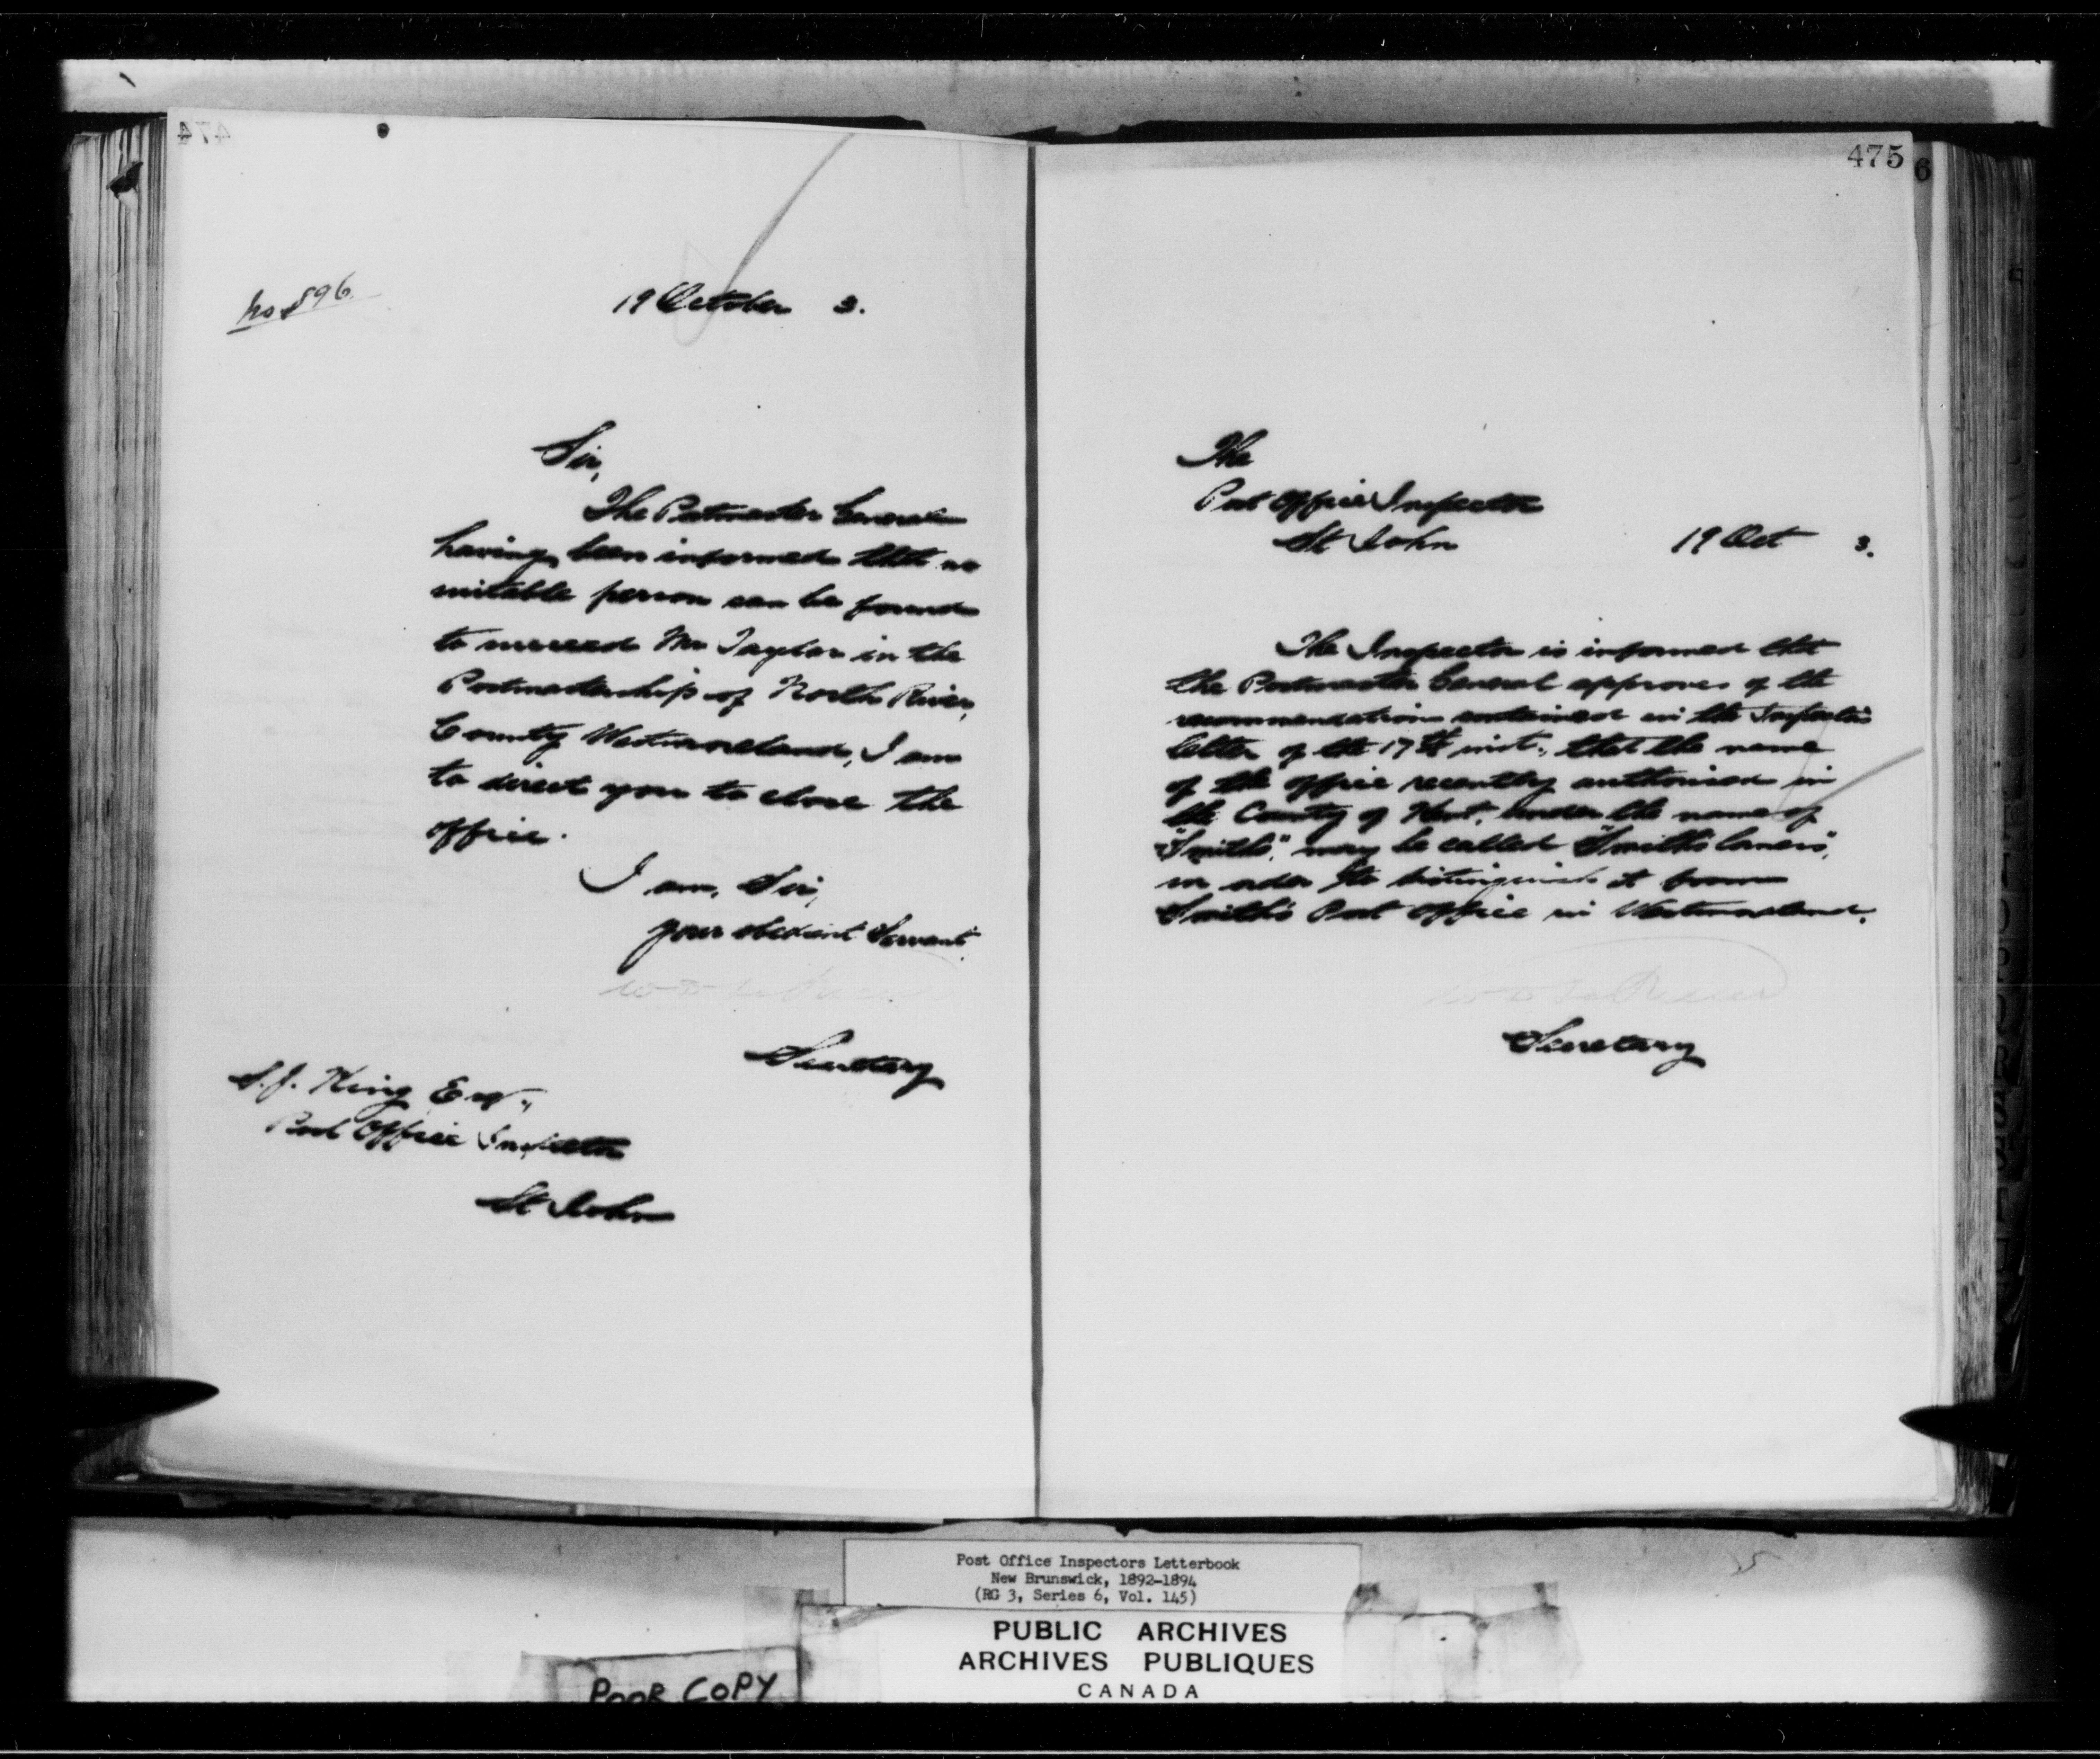 474
No 896.
19 October 3.
Sir,
The Postmaster General
having been informed that no
suitable person can be found
to succeed Mr Taylor in the
Postmastership of North River,
County Westmoreland, I am
to direct you to close the
office.
I am, Sir,
your obedient Servant.
Secretary
S. J. King Esq.,
Post Office Inspector
St John
475
6
The
Post Office Inspector
St John
19 Oct 3.
The Inspector is informed that
the Postmaster General approves of the
recommendation contained in the Inspector's
letter of the 17th inst., that the name
of the office recently authorised in
the County of Kent, under the name of
"Smith's," may be called "Smith's Corners",
in order to distinguish it from
Smith's Post Office in Westmoreland.
Secretary
Post Office Inspectors Letterbook
New Brunswick, 1892-1894
(RG 3, Series 6, Vol. 145)
PUBLIC ARCHIVES
ARCHIVES PUBLIQUES
CANADA
POOR COPY